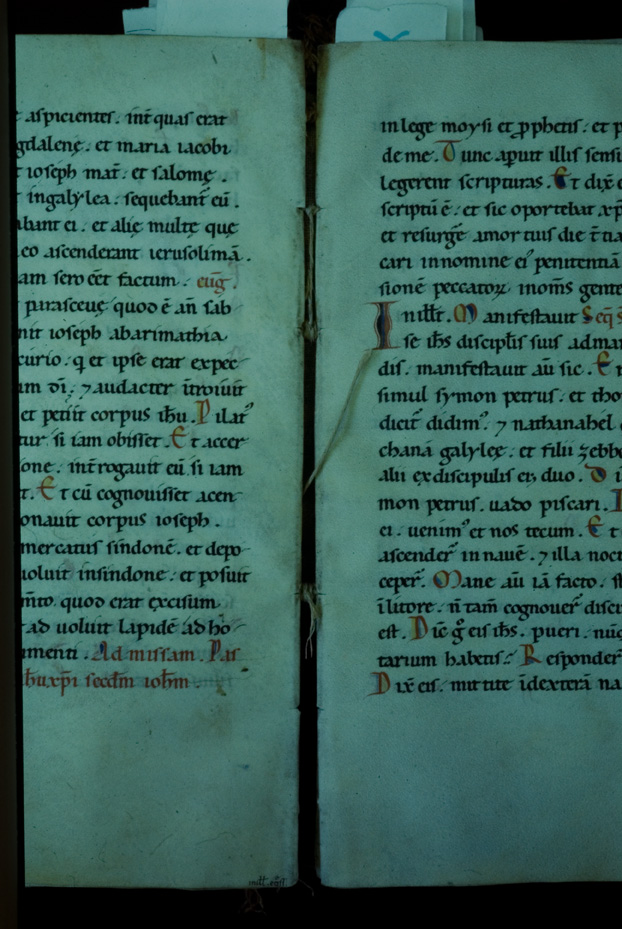 aspicientes. int̄ quas erat
gdalenę. et maria iacobi
ioseph mat̄. et salomę.
ingalylea. sequebant̄ eū.
abant ei. et alię multę quę
eo ascenderant ierusolimā.
am sero eēt factum. eūg̅.
parasceuę quod ē añ sab
nit ioseph abarimathia
curio. q et ipse erat expec
um dī. ⁊ audacter ītroiuit
et petiit corpus ihu. Pilat᾿
tur si iam obisset. Et accer
one. int̄rogauit eū si iam
t. Et cū cognouisset acen
onauit corpus ioseph.
mercatus sindonē. et depo
uoluit insindone. et posuit
m̄to. quod erat excisum
ad uoluit lapidē ad ho
umenti. Ad missam. Pas
ihu xp̄i secd̄m ioh̄m.
inlege moysi et ꝓphetis. et
deme. Tunc apuit illis sensu
legerent scripturas. Et dix̄
scriptū ē. et sic oportebat xp̄
et resurgē̄ amortuis die t̄tia
cari innomine ei᾿ penitentiā
sionē peccatoꝝ inom̄s gente
In ill̄t. Manifestauit Seq̄
se ih̄s discipl̄is suis admar
dis. manifestauit aū sic. E
simul symon petrus. et tho
dicit̄ didim᾿. ⁊ nathanahel
chana galylęę. et filii zebbe
alii exdiscipulis ei; duo. D
mon petrus. uado piscari.
ei. uenim᾿ et nos tecum. Et
ascender̄ in nauē. ⁊ illa noct
ceper̄. Mane aū iā facto.
īlitore. n̄ tam̄ cognouer̄ disci
est. Dic̄ g̊ eis ih̄s. pueri. nūq
tarium habetis. Responder̄
Dix̄ eis. mittite īdexterā na